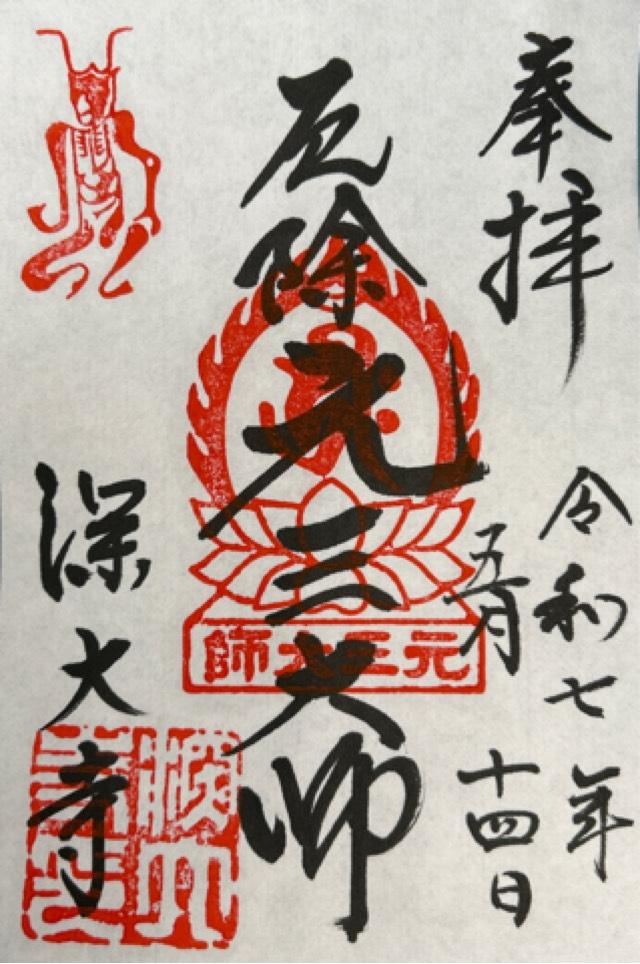 奉拝
令和七年
五月
十四日
厄除元三大師
元三大師
深大寺